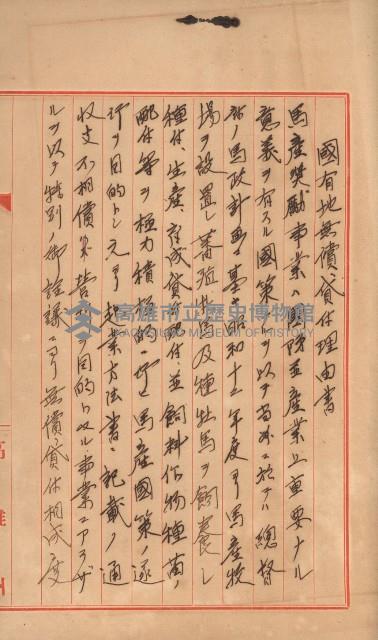 國有地無償貸付理由書
馬產奬勵事業ハ國防並產業上重要ナル
意義ヲ有スル國策ナルヲ以テ當州ニ於テハ總督
府ノ馬政計畫ニ基キ昭和十二年度ヨリ馬產牧
場ヲ設置シ蕃殖牝馬及種牡馬ヲ飼養シ
種付、生產、育成貸付並飼料作物種苗ノ
配付等ヲ極力積極的ニ行ヒ馬產國策ノ遂
行ヲ目的トシ元ヨリ起業方法書ニ記載ノ通
收支不相償營利ヲ目的トスル事業ニアラザ
ルヲ以テ特別ノ御詮議ニヨリ無償貸付相成度
高雄州
高雄市立歷史博物館
KAOHSIUNG MUSEUM OF HISTORY